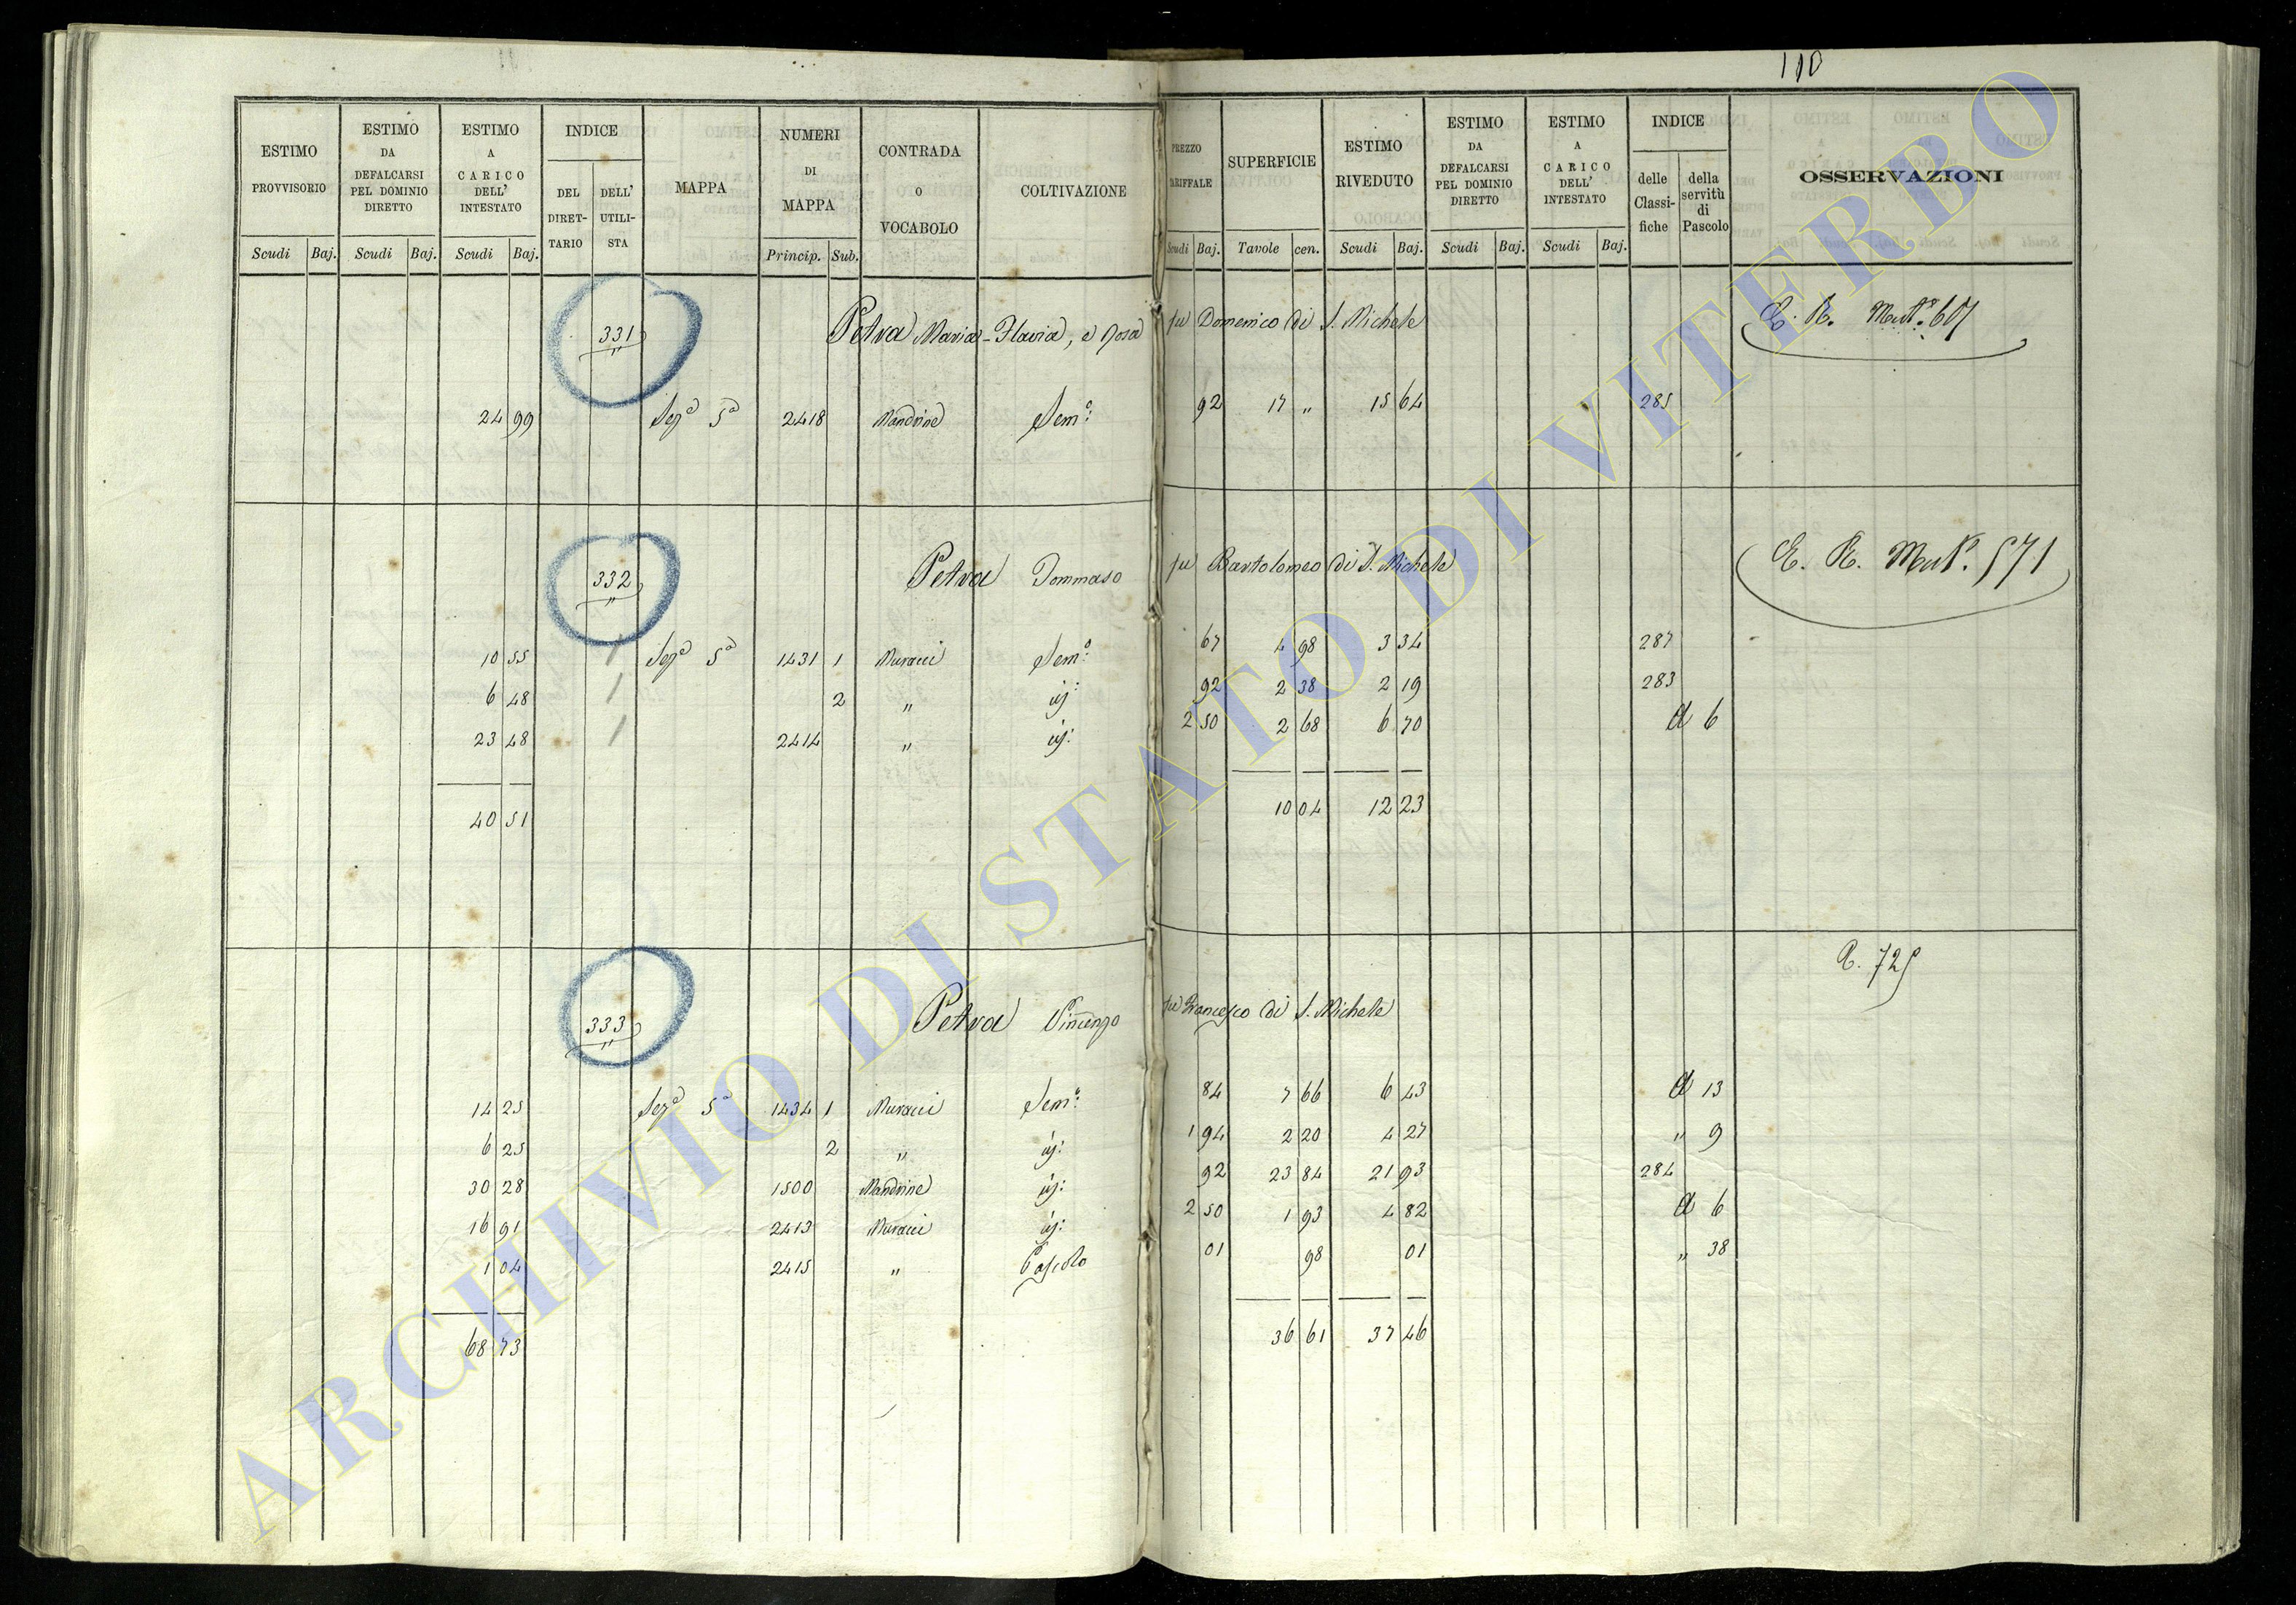 110
ESTIMO PROVVISORIO | ESTIMO DA DEFALCARSI PEL DOMINIO DIRETTO | ESTIMO A CARICO DELL' INTESTATO | INDICE | MAPPA | NUMERI DI MAPPA | CONTRADA O VOCABOLO | COLTIVAZIONE | PREZZO TARIFFALE | SUPERFICIE | ESTIMO RIVEDUTO | ESTIMO DA DEFALCARSI PEL DOMINIO DIRETTO | ESTIMO A CARICO DELL' INTESTATO | INDICE | OSSERVAZIONI
DEL DIRETTARIO | DELL' UTILISTA | delle Classifiche | della servitù di Pascolo
Scudi | Baj. | Scudi | Baj. | Scudi | Baj. | Princip. | Sub. | Scudi | Baj. | Tavole | cen. | Scudi | Baj. | Scudi | Baj. | Scudi | Baj.
331 Petra Maria-Flavia, e Rosa fu Domenico di S. Michele E. R. Mut.e 607
24 99 Sez.a 5a 2418 Mandrine Sem.o: 92 17 " 15 64 285
332 Petra Tommaso fu Bartolomeo di S. Michele E. R. Mut. 571
10 55 Sez.a 5a 1431 1 Muracci Sem.o: 67 4 98 3 34 287
6 48 2 " id: 92 2 38 2 19 283
23 48 2414 " id: 2 50 2 68 6 70 A 6
40 51 10 04 12 23
333 Petra Vincenzo fu Francesco di S. Michele R. 725
14 25 Sez.a 5a 1434 1 Muracci Sem.o: 84 7 66 6 43 A 13
6 25 2 " id: 1 94 2 20 4 27 " 9
30 28 1500 Mandrine id: 92 23 84 21 93 284
16 91 2413 Muracci id: 2 50 1 93 4 82 A 6
1 04 2415 " Pascolo 01 98 01 " 38
68 73 36 61 37 46
ARCHIVIO DI STATO DI VITERBO